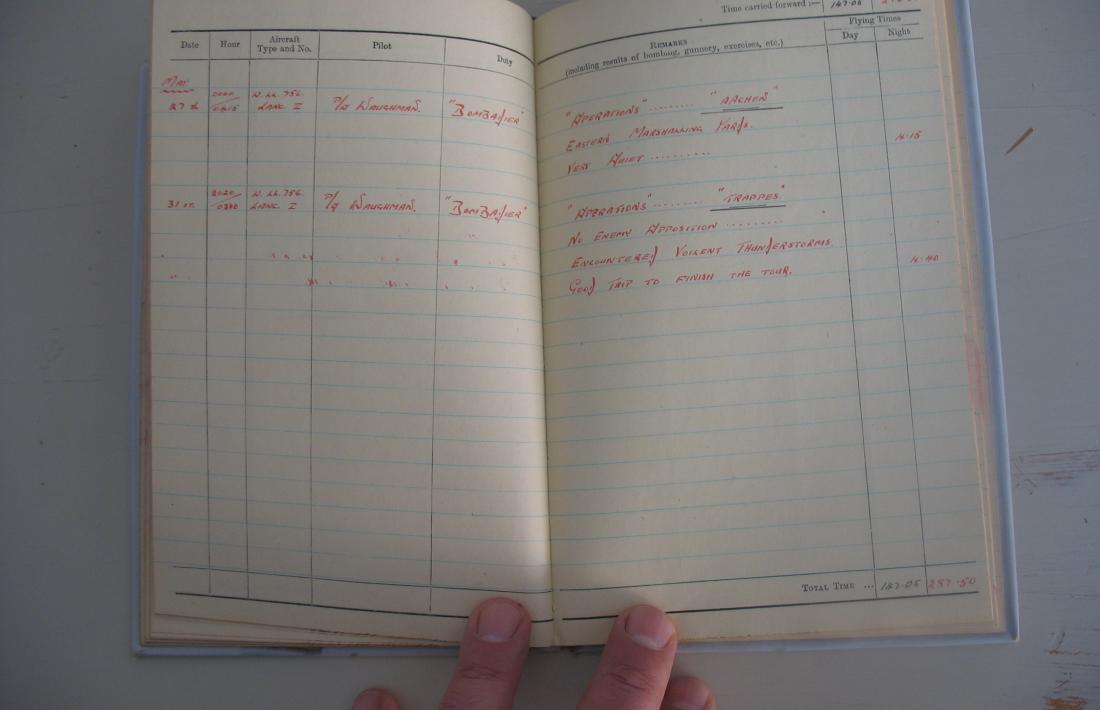 Time carried forward :— 147·05
Date Hour Aircraft Type and No. Pilot Duty
REMARKS (including results of bombing, gunnery, exercises, etc.) Flying Times Day Night
MAY
27 W. LL. 756. LANC I P/O WAUGHMAN. "BOMBAIFIER" "OPERATIONS" ......... "AACHEN"
EASTERN MARSHALLING YARDS.
VERY QUIET ..........
4·15
31 ST. 2020/0300 W. LL. 756. LANC I P/O WAUGHMAN. "BOMBAIFIER" "OPERATIONS" ........ "TRAPPES"
NO ENEMY OPPOSITION .........
ENCOUNTERED VOILENT THUNDERSTORMS
4·40
GOOD TRIP TO FINISH THE TOUR.
TOTAL TIME ... 147·05 287·50